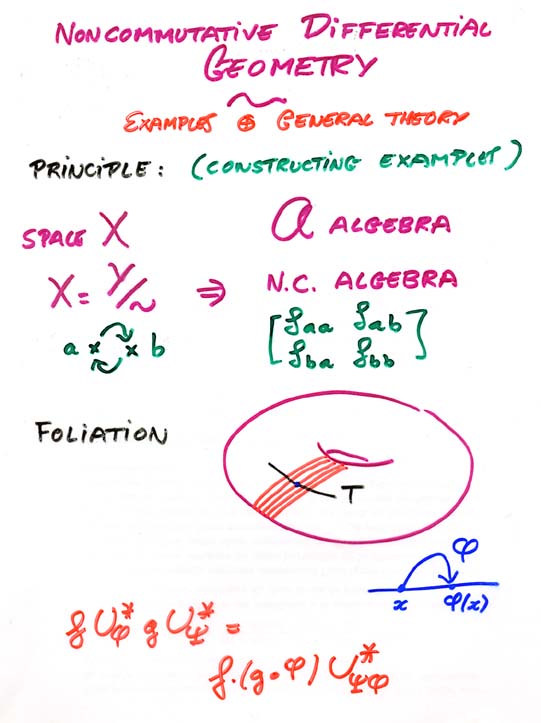 NONCOMMUTATIVE DIFFERENTIAL
GEOMETRY
~
EXAMPLES ⊕ GENERAL THEORY
PRINCIPLE: (CONSTRUCTING EXAMPLES)
SPACE X    a ALGEBRA
X = Y/~ ⇒ N.C. ALGEBRA
a × × b    [ f_aa f_ab
f_ba f_bb ]
FOLIATION
T
φ
x φ(x)
f U_φ^* g U_ψ^* =
f.(g∘φ) U_ψφ^*